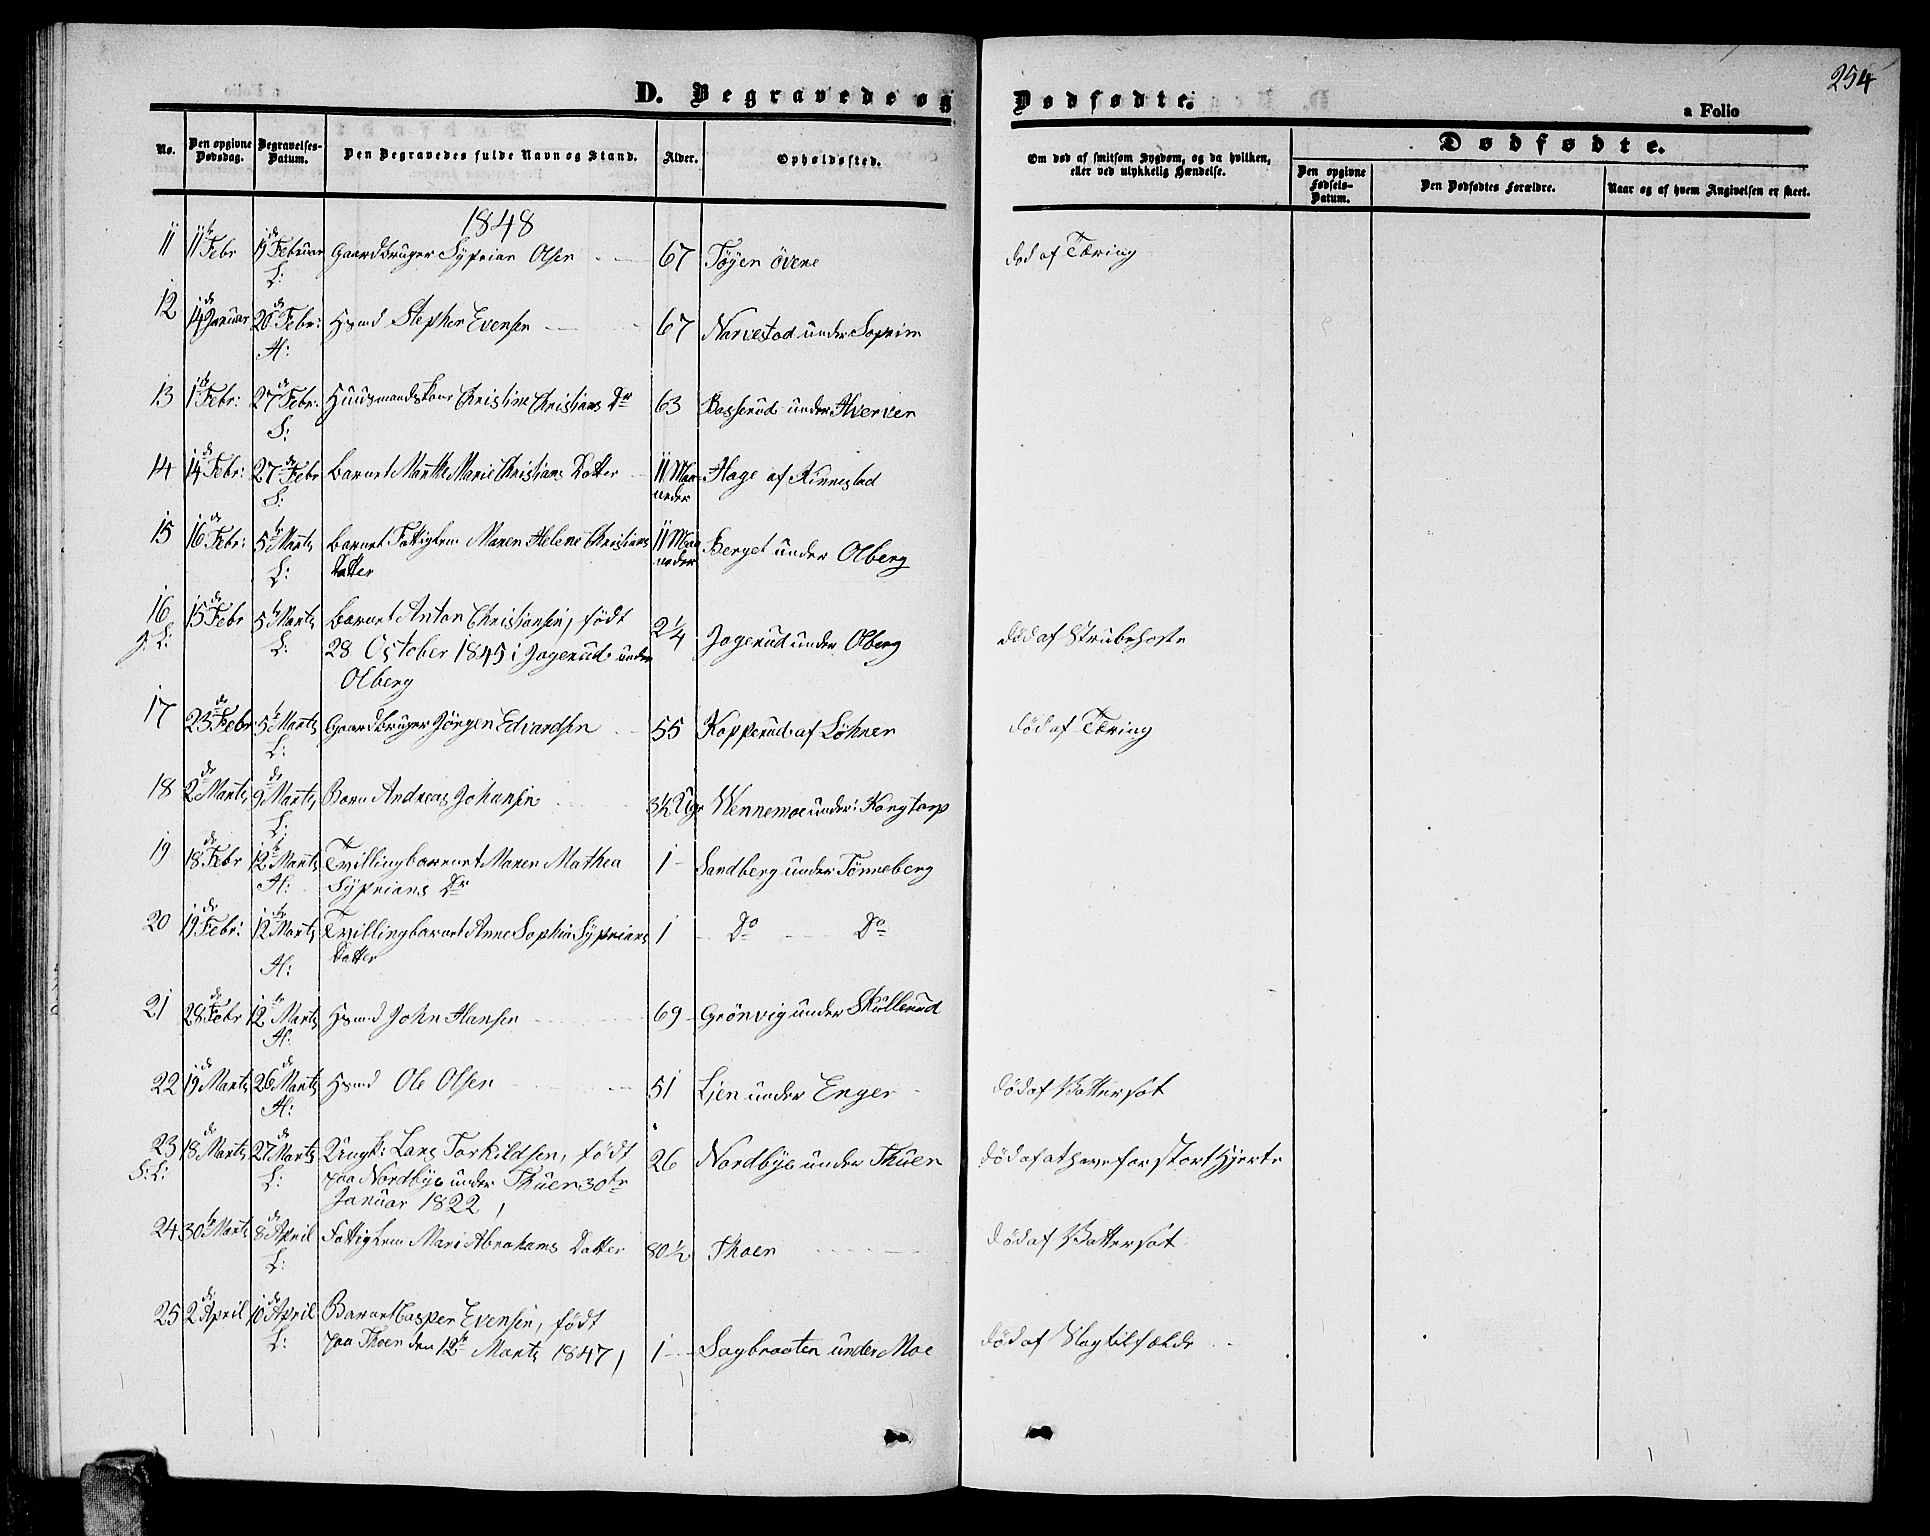 254
D. Begravede og Dødfødte.
a Folio
No.
Den opgivne Dødsdag.
Begravelses-Datum.
Den Begravedes fulde Navn og Stand.
Alder.
Opholdssted.
Om død af smitsom Sygdom, og da hvilken, eller ved ulykkelig Hændelse.
Dødfødte.
Den opgivne Fødsels-Datum.
Den Dødfødtes Forældre.
Naar og af hvem Angivelsen er skeet.
1848
11 11 Febr 19 Februar Gaardbruger Syprian Olsen 67 Tøyen övene død af Tæring
L:
12 14 Januar 20 Febr: Hsmd Stephen Evensen 67 Narvestad under Soprim
H:
13 1 Febr: 27 Febr: Huusmandskone Christine Christians Dr 63 Basserud under Hverven
S:
14 14 Febr: 27 Febr Barnet Marthe Marie Christians Datter 11 Maa- Hage af Kinnestad
S: neder
15 16 Febr: 5te Marts Barnet Fattiglem Maren Helene Christians 11 Maa Berget under Olberg
L: Datter neder
16 15 Febr 5te Marts Barnet Anton Christiansen, født 2 1/4 Jagerud under Olberg død af Strubehoste
J. L: L: 28 October 1845 i Jagerud under
Olberg
17 23 Febr 5te Marts Gaardbruger Jörgen Edvardsen 55 Kopperud af Löhner død af Tæring
L:
18 2 Marts 9 Marts Barn Andreas Johansen 3½ Uge Wennemoe under: Kongtorp
L:
19 18 Febr 12 Marts Tvillingbarnet Maren Mathea 1 Sandberg under Tønneberg
H: Syprians Dr
20 19 Febr: 12 Marts Tvillingbarnet Anne Sophia Syprians 1 Do Do
H: Datter
21 28 Febr 12 Marts Hsmd John Hansen 69 Grönvig under Skullerud
H:
22 19 Marts 26 Marts Hsmd Ole Olsen 51 Lien under Enger død af Vattersot
H:
23 18 Marts 27 Marts Ungk: Lars Torkildsen, født 26 Nordbye under Thuen død af at have for stort Hjerte
S: L: L: paa Nordbye under Thuen 30te
Januar 1822,
24 30 Marts 8 April Fattiglem Mari Abrahams Datter 80 ½ Thoen død af Vattersot
L:
25 2 April 10 April Barnet Casper Evensen, født
L: paa Thoen den 12te Marts 1847, 1 Sagbraaten under Moe død af Slagtilfælde